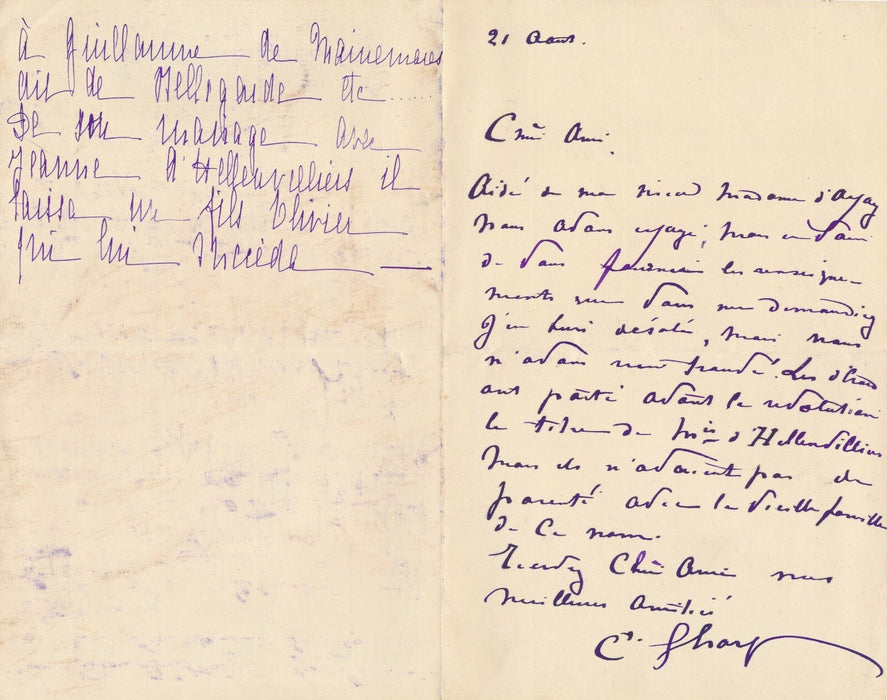 à Guillaume de Mainemares
dit de Bellegarde etc......
De son mariage avec
Jeanne d'Hellenvilliers il
laissa un fils Olivier
qui lui succéda
21 Aout.
Cher Ami.
Aidé de ma nièce Madame d'
nous avons essayé, mais en vain
de vous fournir les renseigne-
ments que vous me demandiez
J'en suis désolé, mais nous
n'avons rien trouvé. Les
ont porté avant la révolution
le titre de Mis d'Hellenvilliers
Mais ils n'avaient pas de
parenté avec la vieille famille
de ce nom.
Cher Ami mes
meilleures amitiés
Ct.